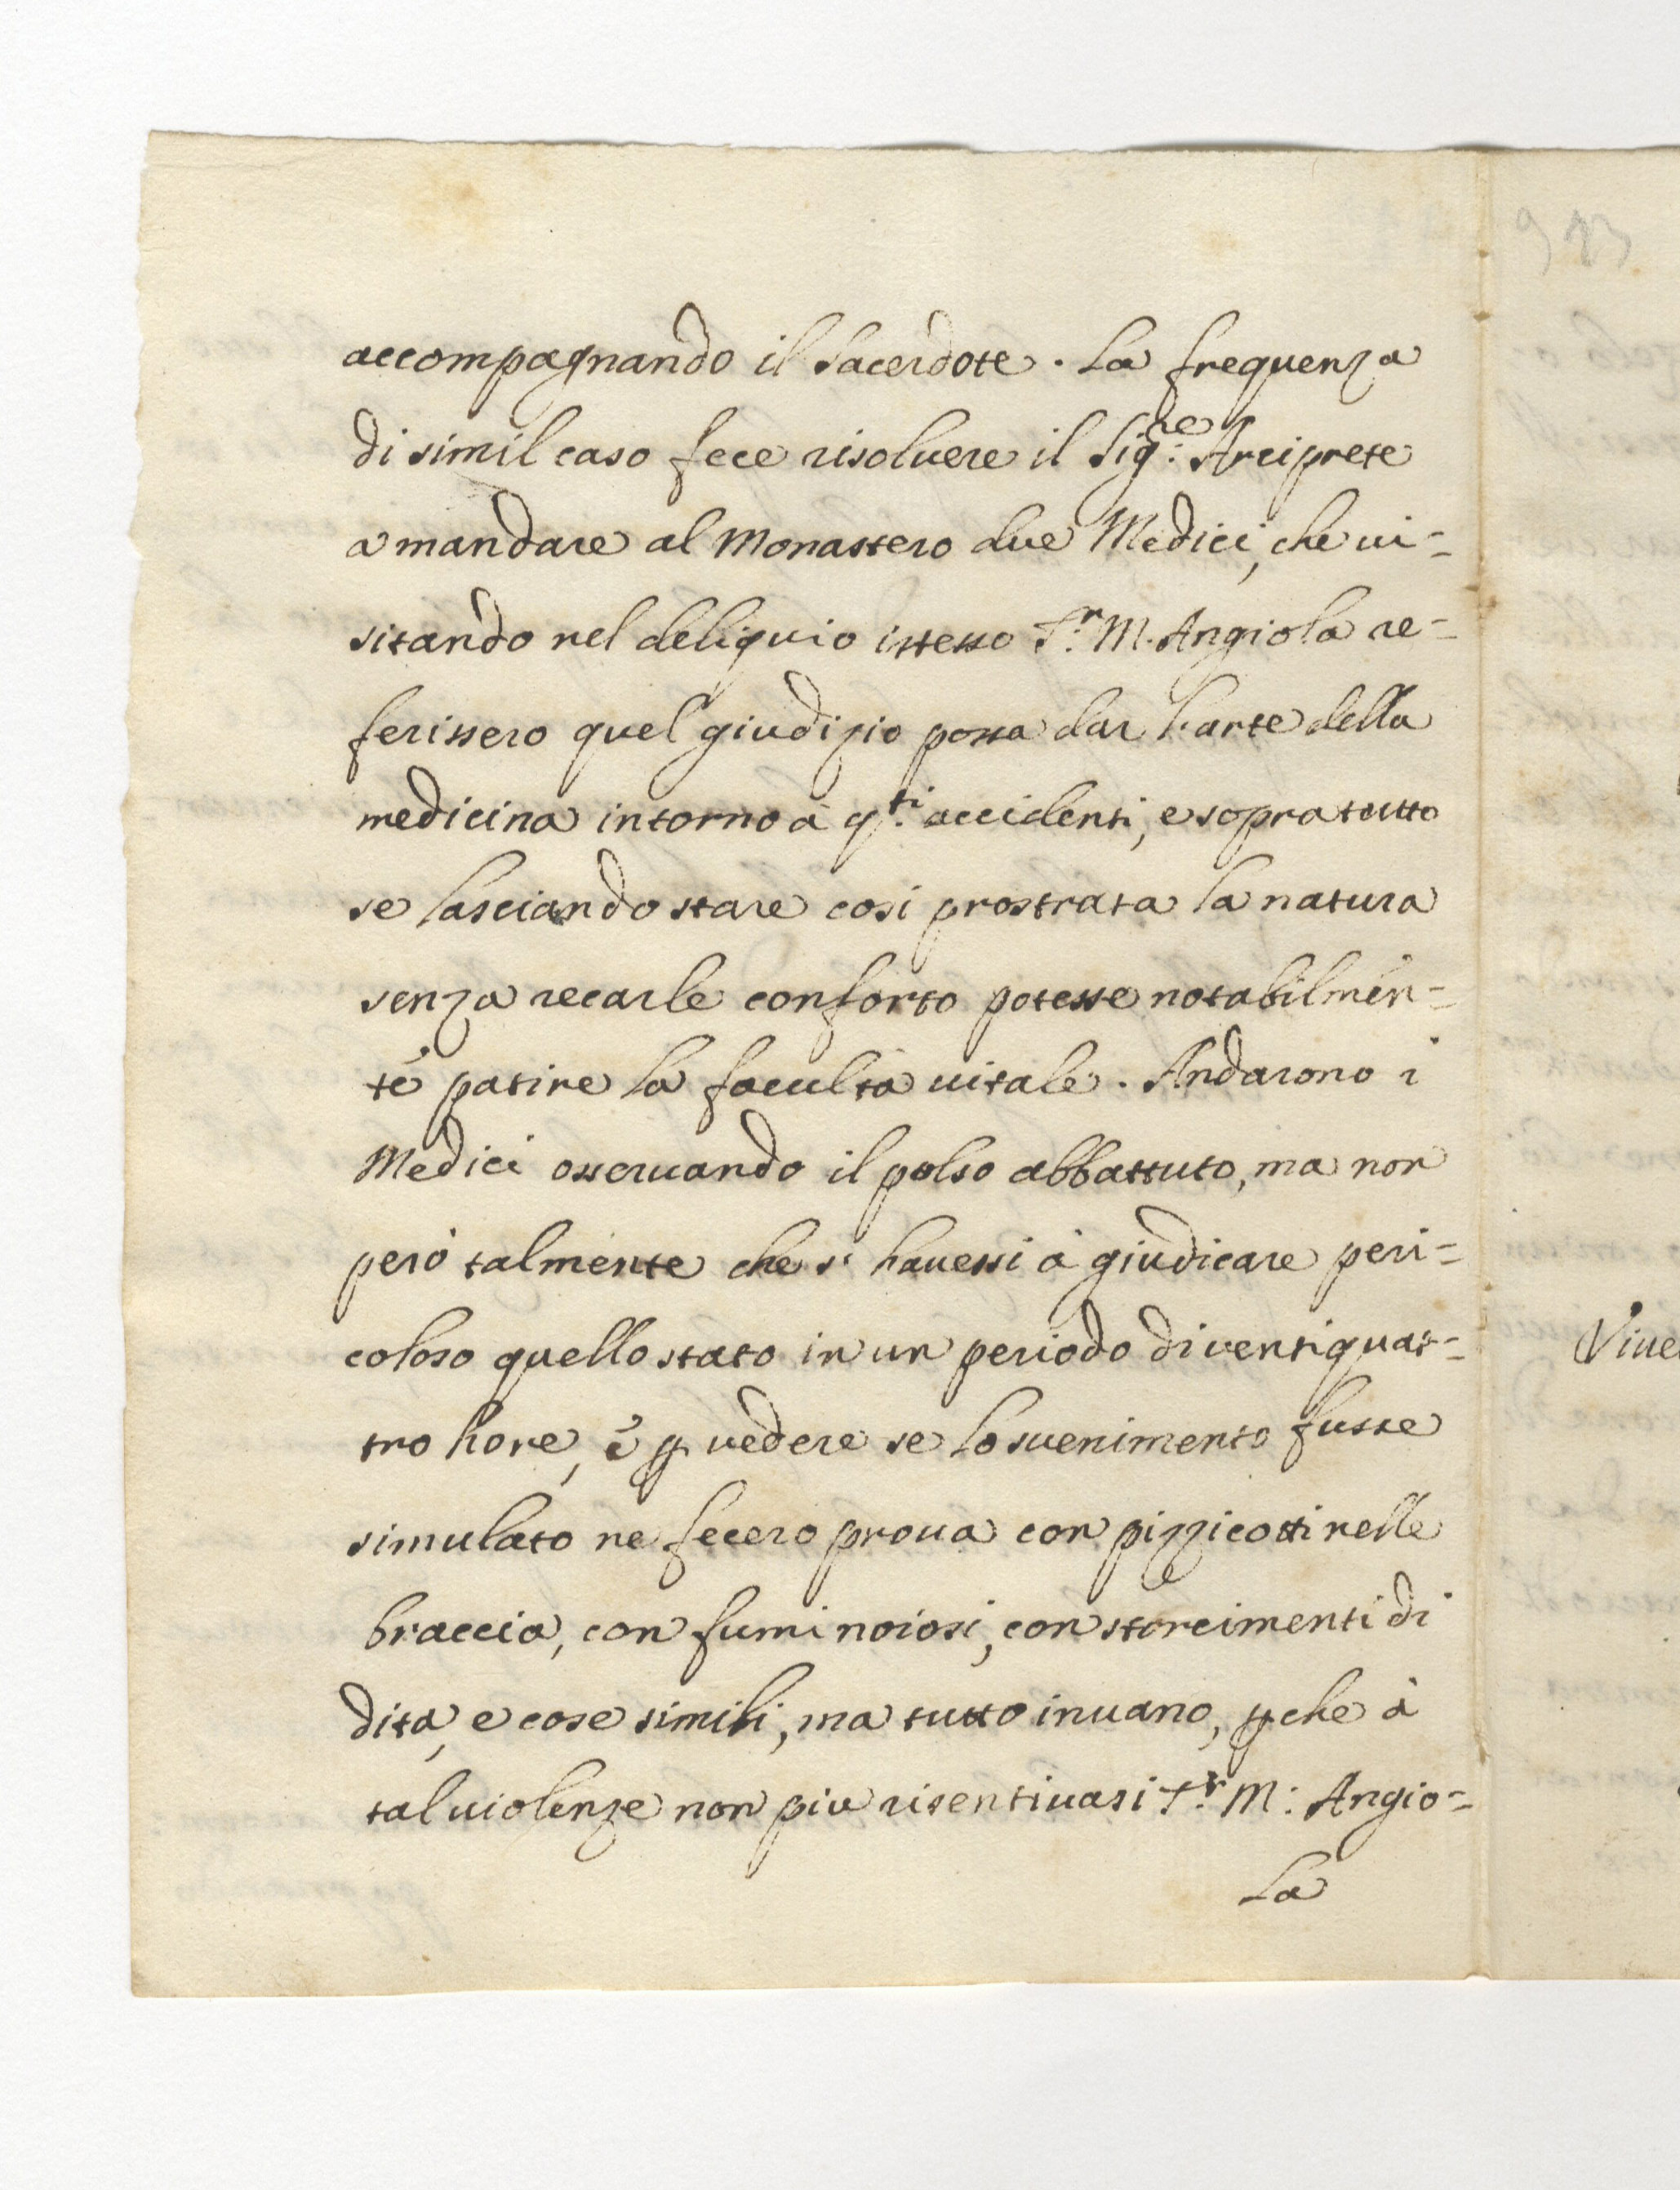 accompagnando il Sacerdote. La frequenza
di simil caso fece risoluere il Sig:re Arciprete
a mandare al Monastero due Medici, che ui=
sitando nel deliquio istesso S:r M. Angiola re=
ferissero quel giudizio possa dar l'arte della
medicina intorno à q:ti accidenti, e sopra tutto
se lasciando stare cosi prostrata la natura
senza recarle conforto potesse notabilmen=
te patire la faculta uitale. Andarono i
Medici osseruando il polso abbattuto, ma non
però talmente che s' hauessi à giudicare peri=
coloso quello stato in un periodo di uentiquat=
tro hore, è ꝑ uedere se lo suenimento fusse
simulato ne fecero proua con pizzicotti nelle
braccia, con fumi noiosi, con storcimenti di
dita, e cose simili, ma tutto inuano, ꝑche à
tal uiolenze non piu risentiuasi S:r M: Angio=
la
923
Viue